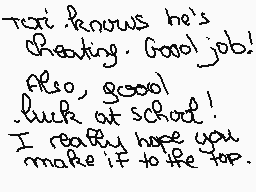 Tori knows he's
cheating. Good job!
Also, good
luck at school!
I really hope you
make it to the top.